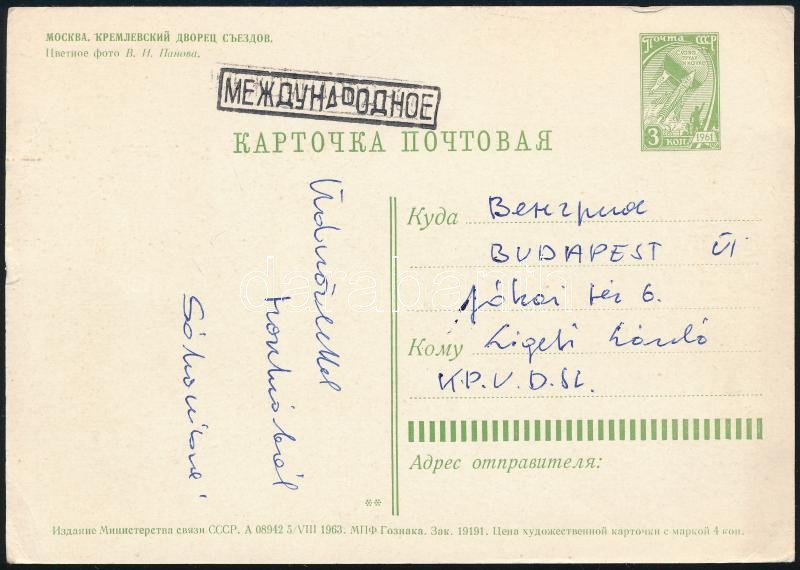 МОСКВА. КРЕМЛЕВСКИЙ ДВОРЕЦ СЪЕЗДОВ.
Цветное фото В. И. Панова.
МЕЖДУНАРОДНОЕ
Почта СССР
3 коп.
1961
КАРТОЧКА ПОЧТОВАЯ
Куда Венгрия
BUDAPEST VI
Jókai tér 6.
Кому Ligeti László
K.P.V.D.SZ.
Üdvözlettel
Адрес отправителя:
**
Издание Министерства связи СССР. А 08942 5/VIII 1963. МПФ Гознака. Зак. 19191. Цена художественной карточки с маркой 4 коп.